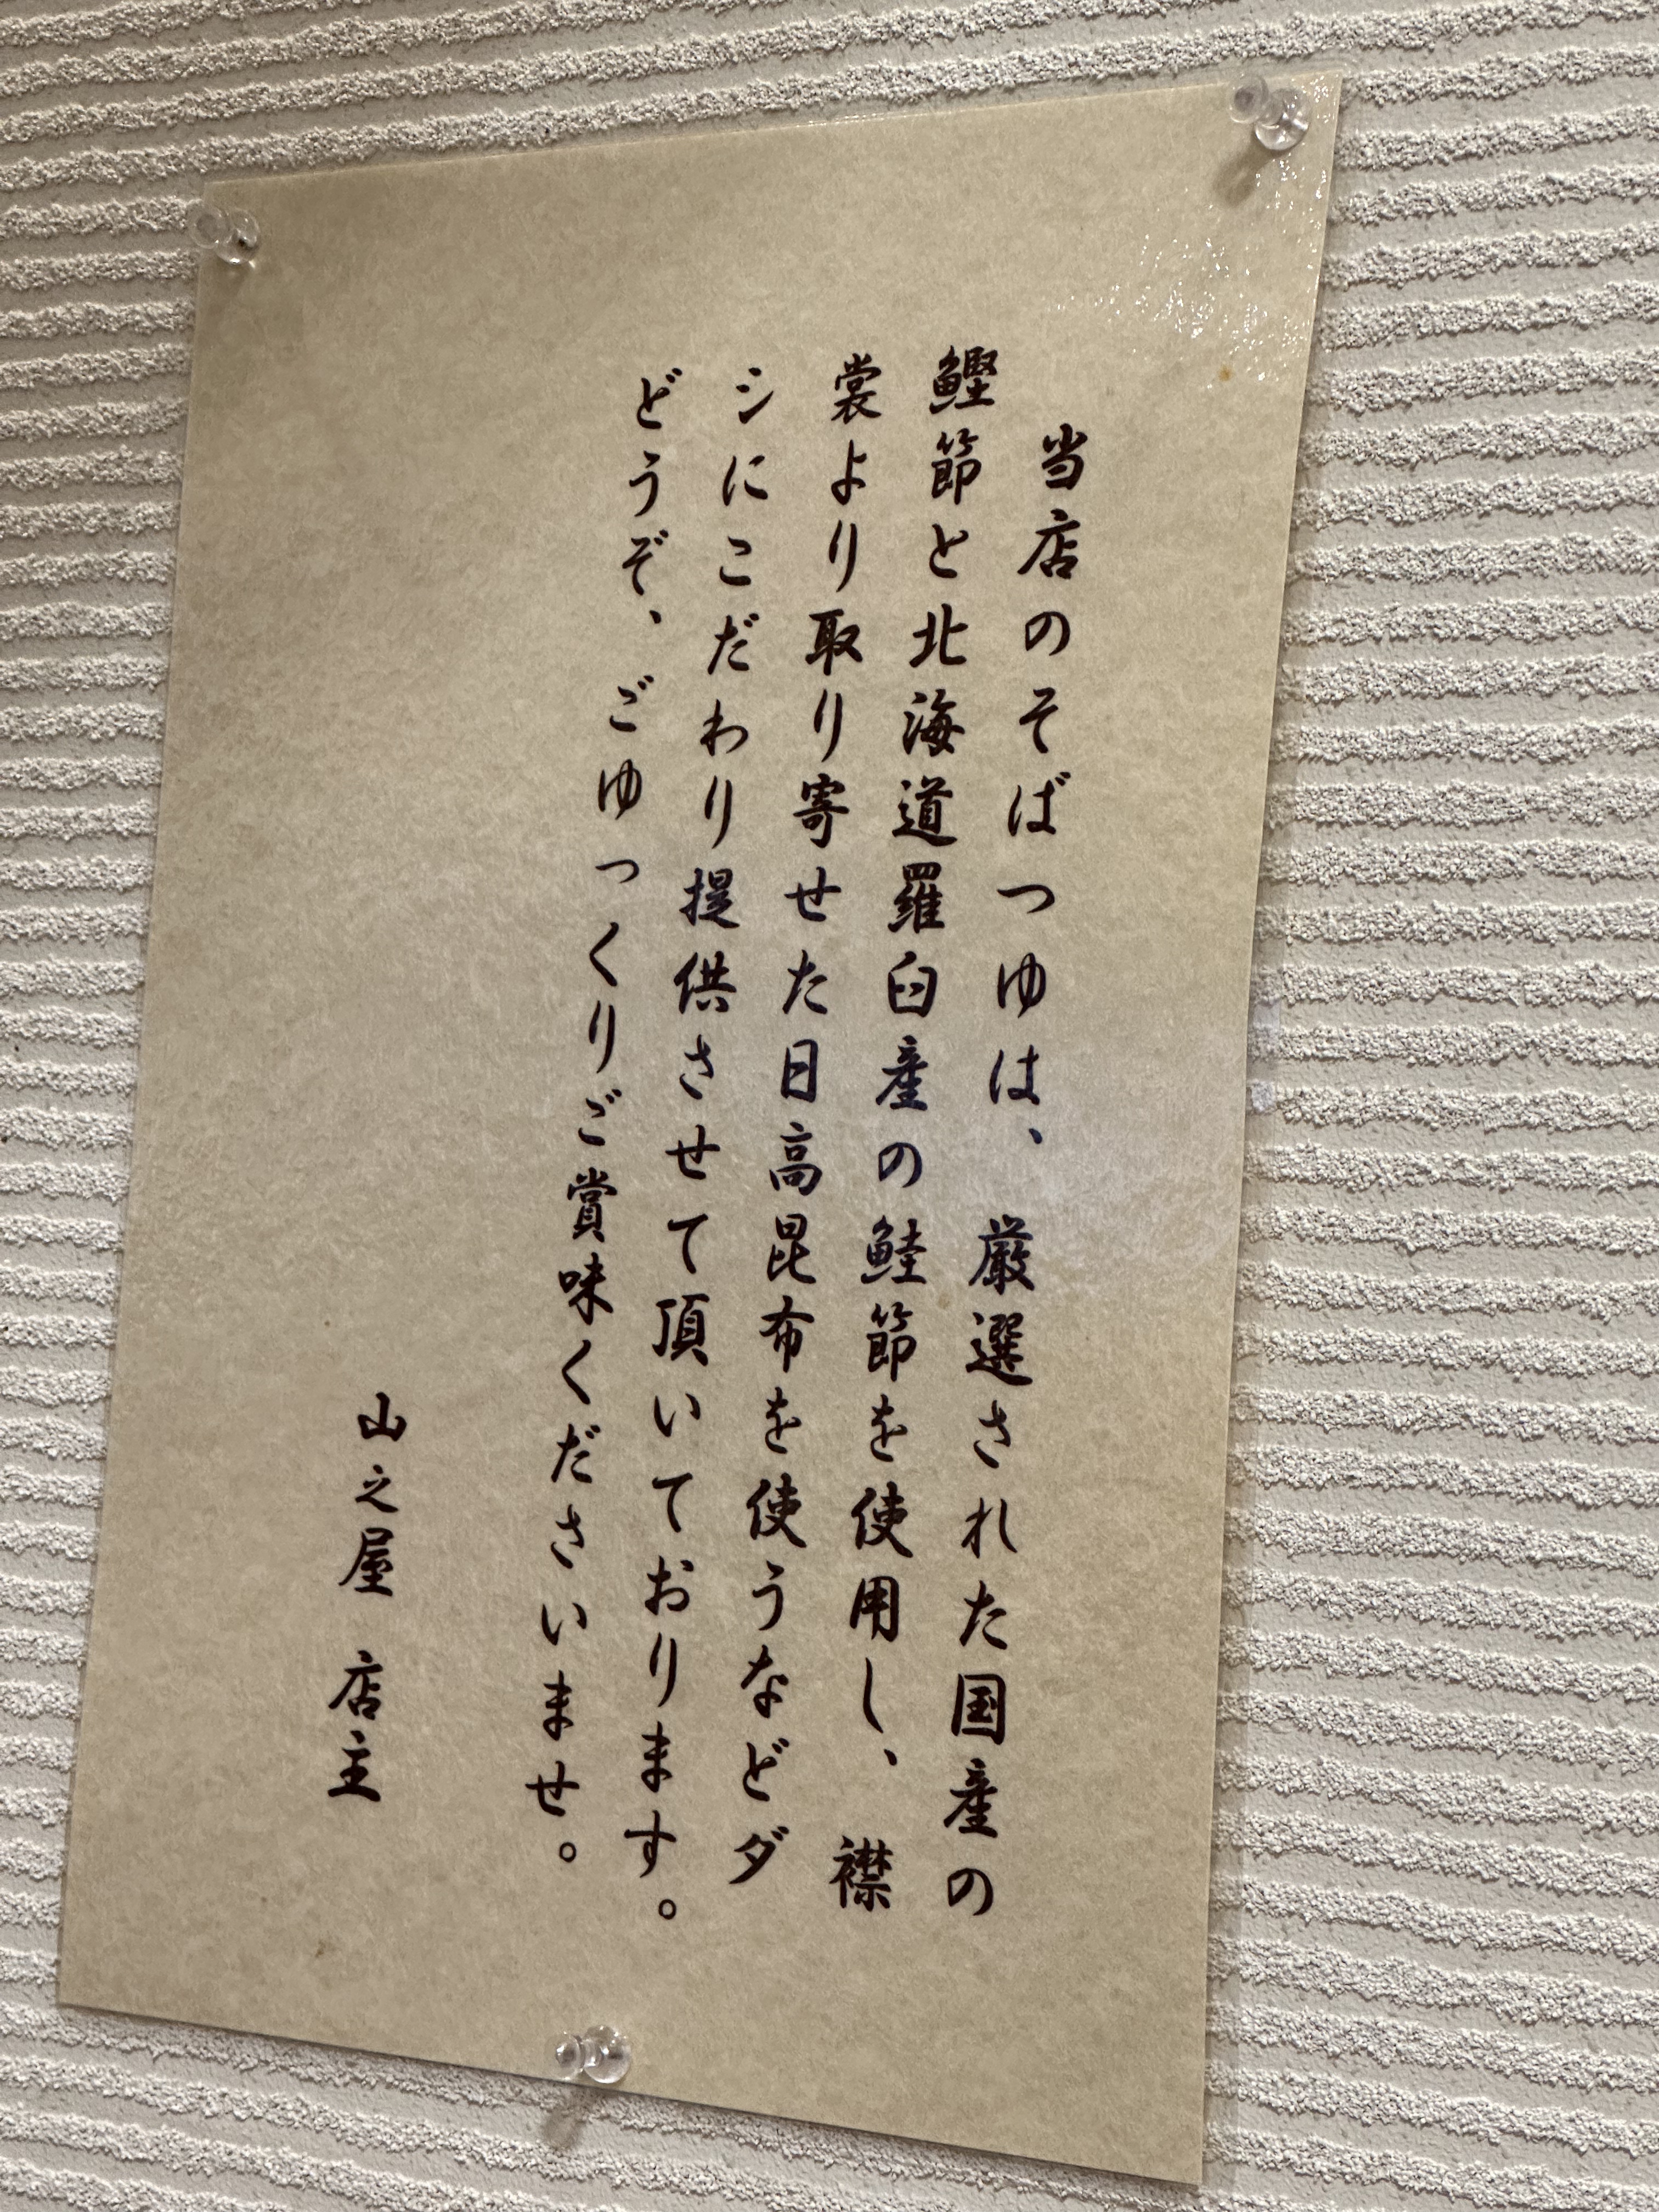 当店のそばつゆは、厳選された国産の
鰹節と北海道羅臼産の鮭節を使用し、襟
裳より取り寄せた日高昆布を使うなどダ
シにこだわり提供させて頂いております。
どうぞ、ごゆっくりご賞味くださいませ。
山之屋 店主